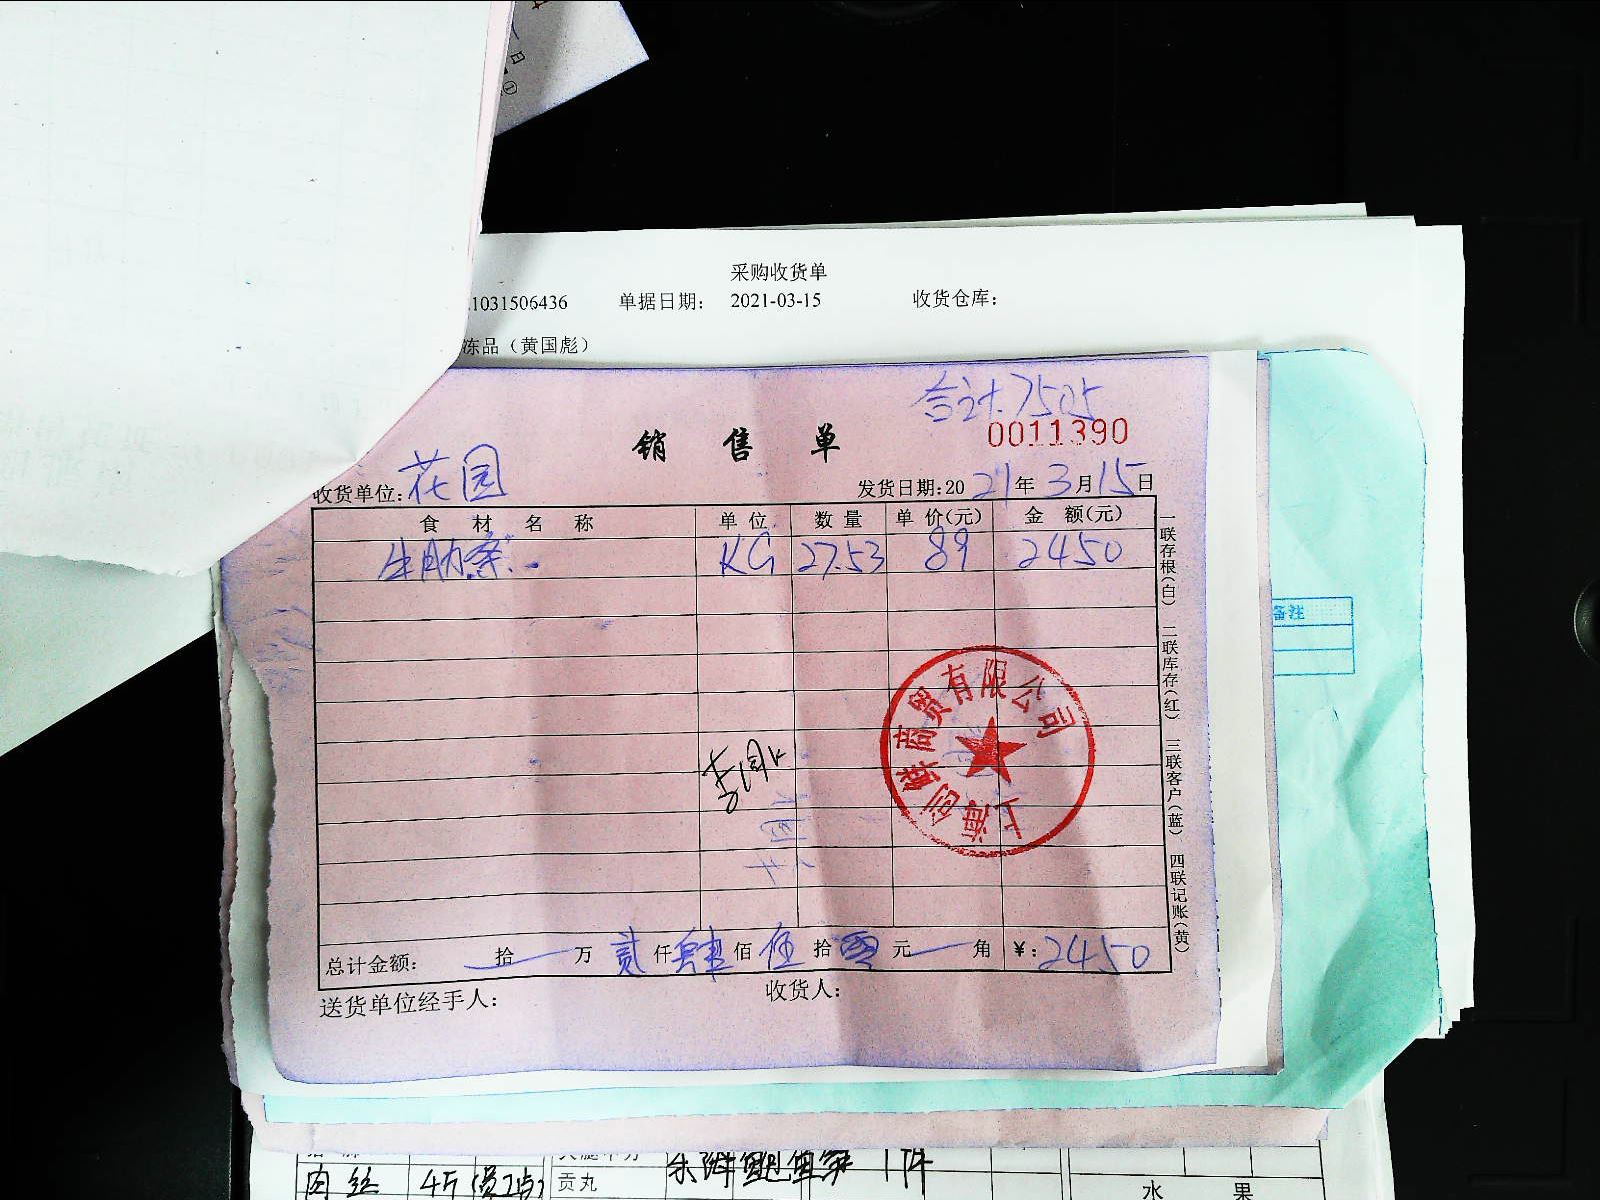 采购收货单
1031506436 单据日期: 2021-03-15 收货仓库:
冻品（黄国彪）
合计.7505
销售单 0011390
收货单位:花园 发货日期:2021年3月15日
食材名称 单位 数量 单价(元) 金额(元)
牛肋条 KG 27.53 89 2450
一联存根(白) 二联库存(红) 三联客户(蓝) 四联记账(黄)
备注
上海创 商贸有限公司
总计金额: 拾 万 贰仟肆佰伍拾零元 角 ¥:2450
送货单位经手人: 收货人:
肉丝 4斤(员工点) 贡丸 1件
水果